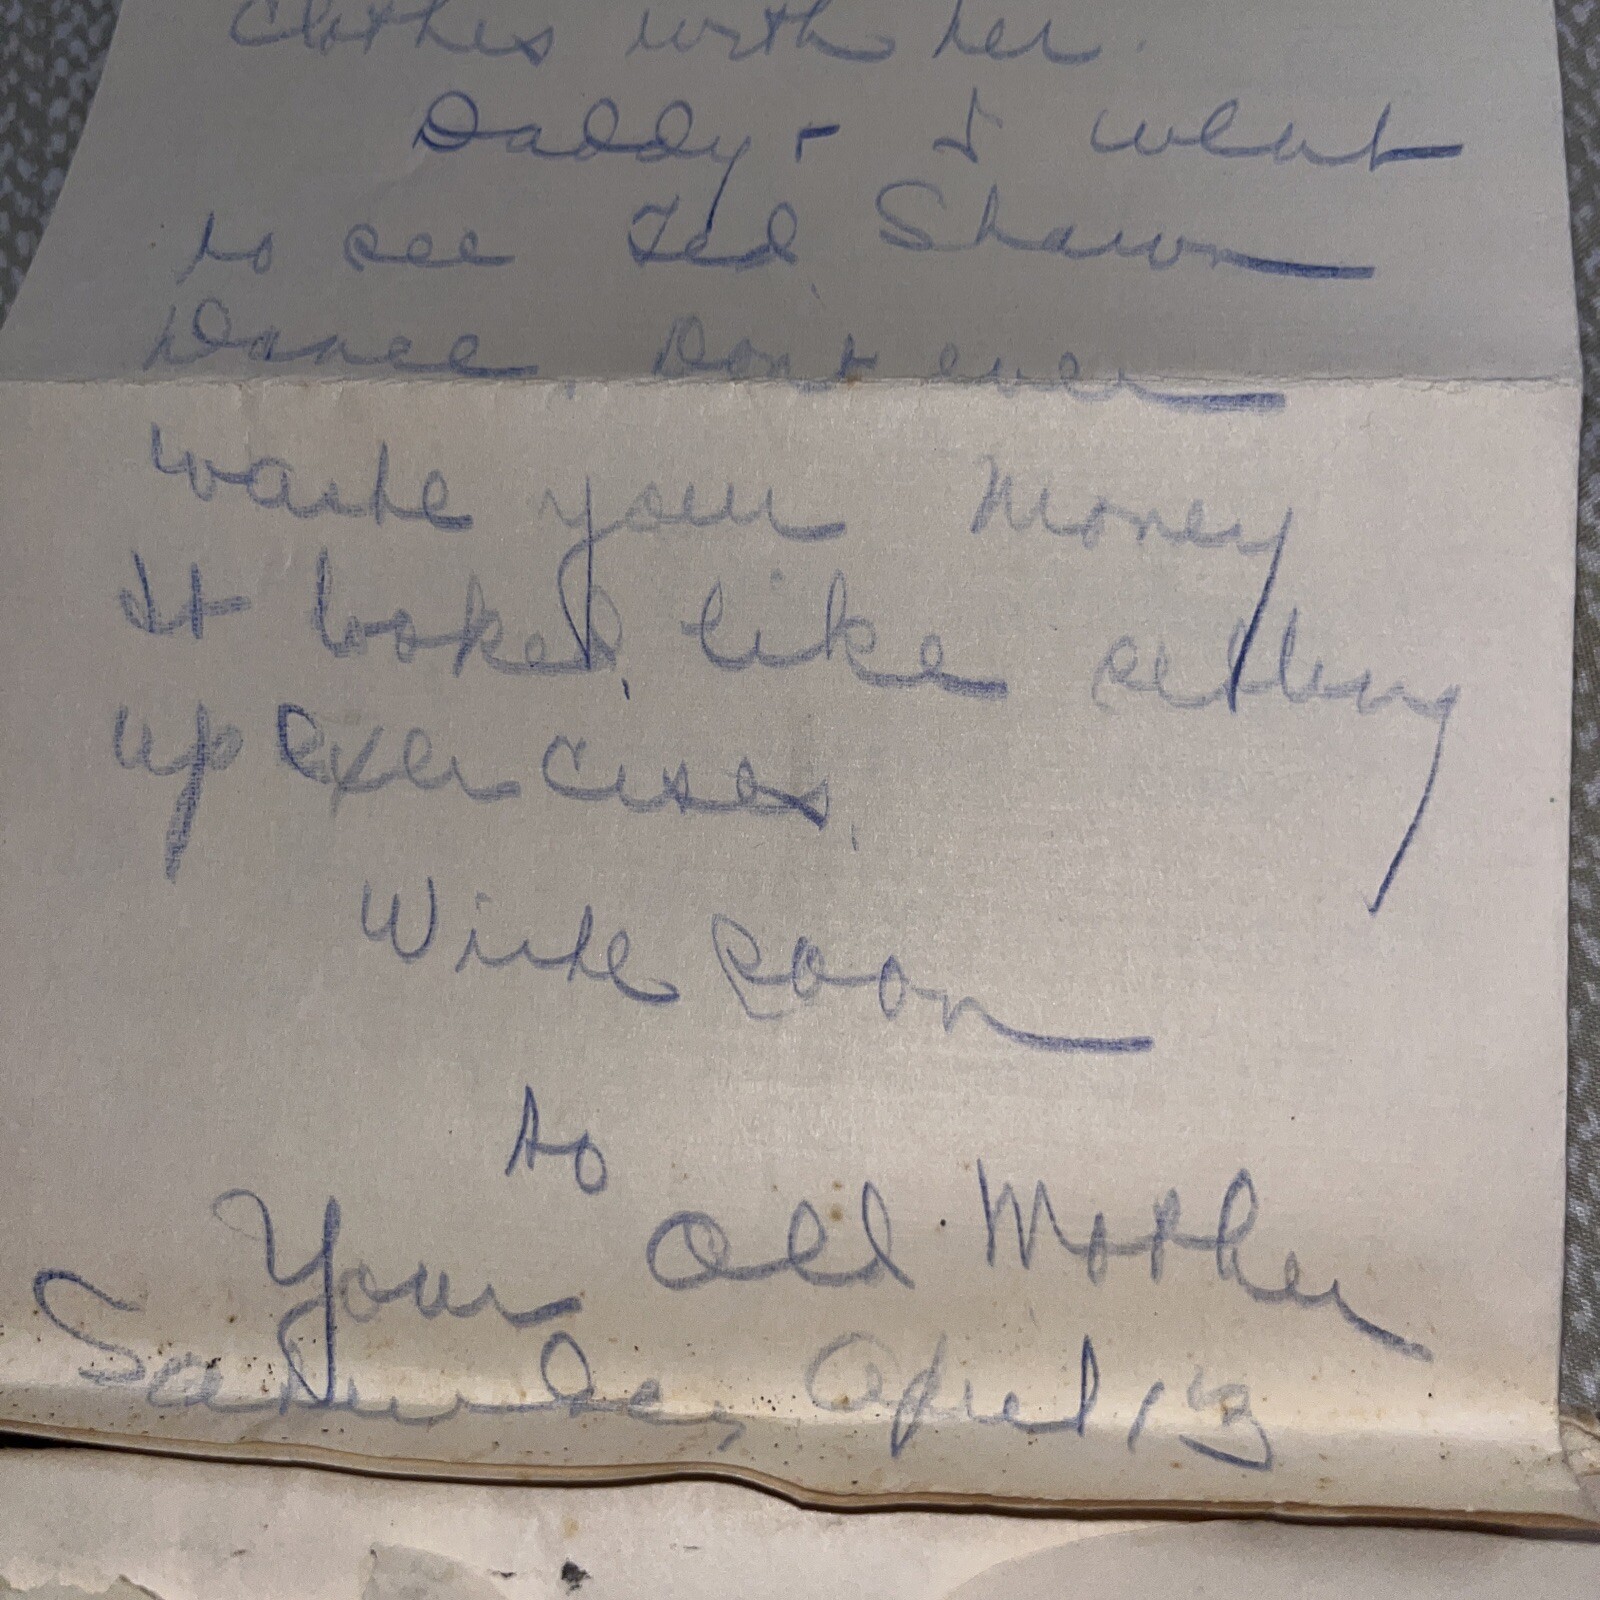 clothes with her.
Daddy + I went
to see Ted Shawn
Dance. Don't ever
waste your money
It looked like setting
up exercises.
Write soon
to
Your Old Mother
Saturday, April 13